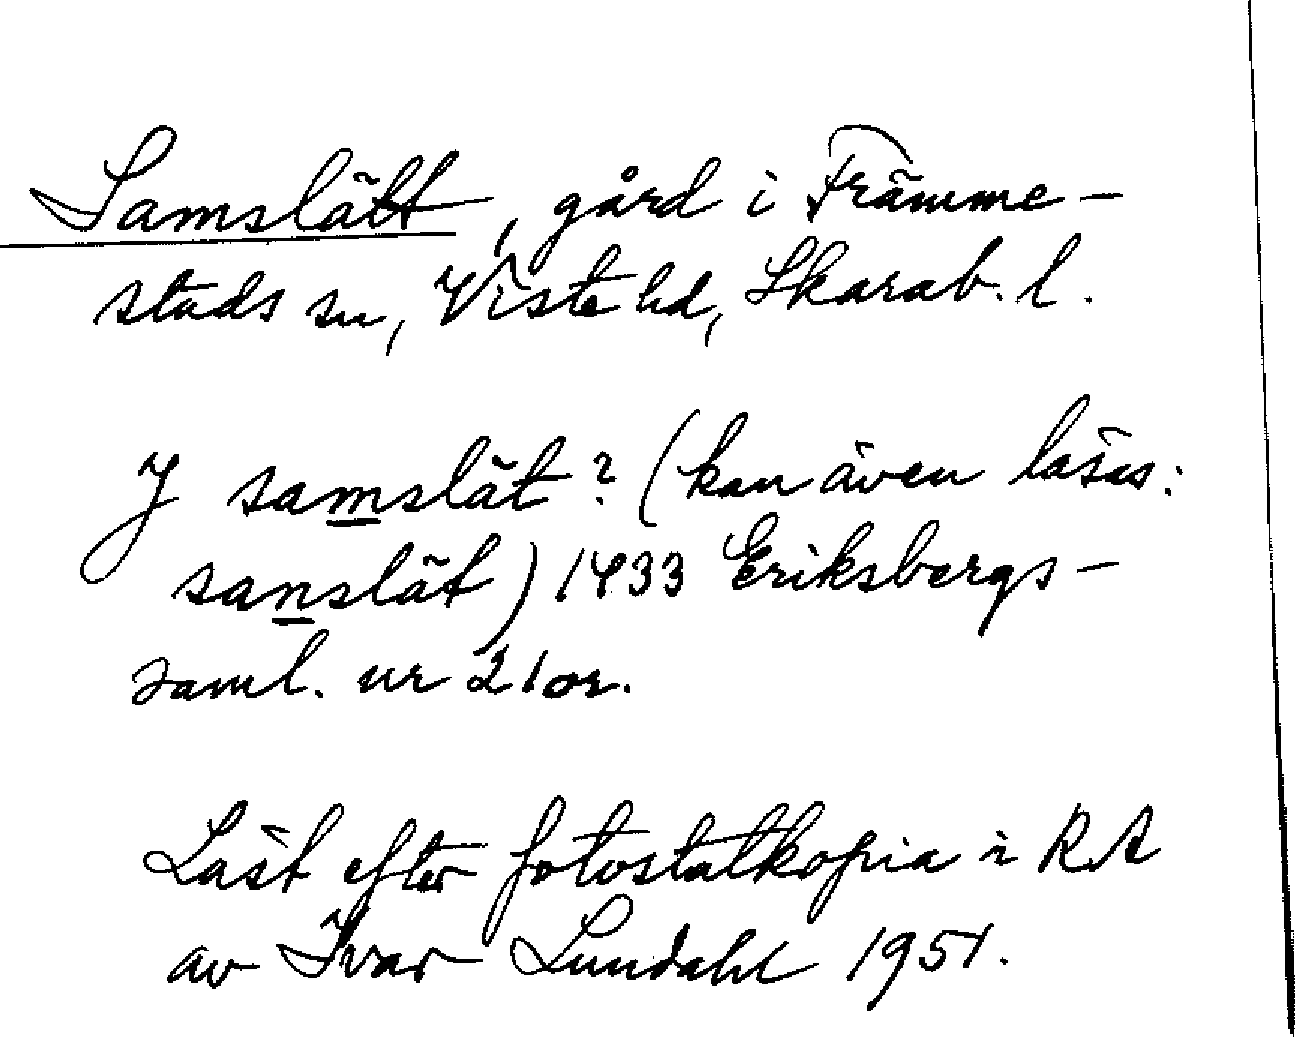 Samslätt, gård i Främme-
stads sn, Viste hd, Skarab. l.
J samslät? (kan även läsas:
sanslät) 1433 Eriksbergs-
saml. nr 21 or.
Läst efter fotostatkopia i RA
av Ivar Lundahl 1951.